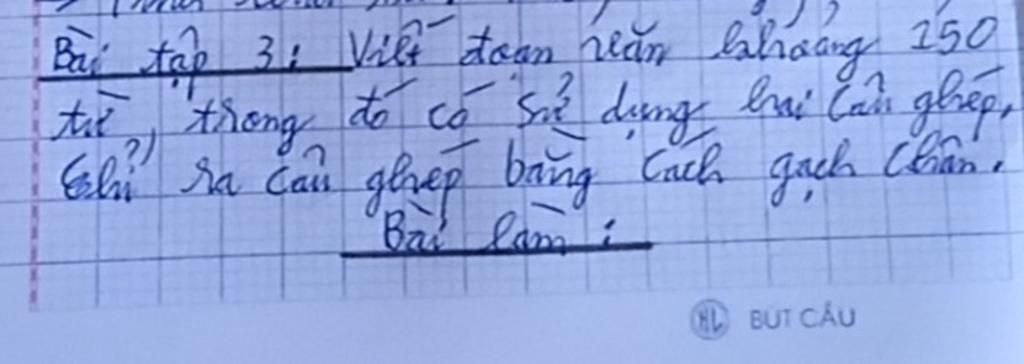 Bài tập 3: Viết đoạn văn khoảng 150
từ, trong đó có sử dụng hai câu ghép,
Chỉ ra câu ghép bằng cách gạch chân.
Bài làm:
BÚT CÂU